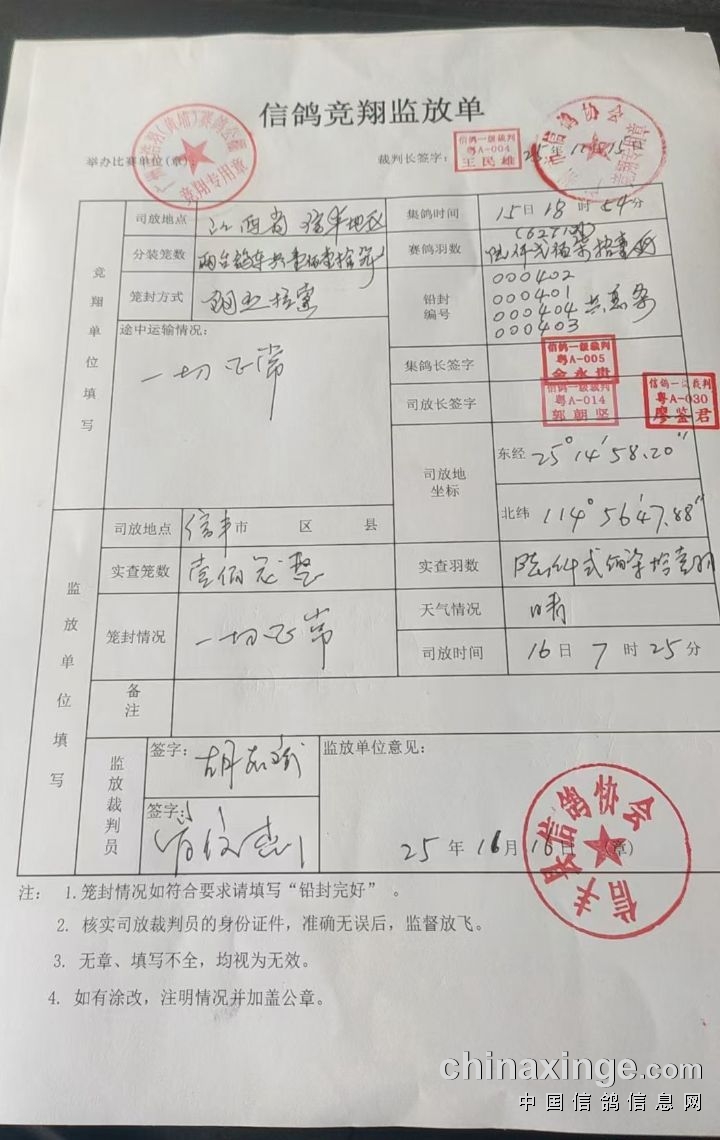 信鸽竞翔监放单
举办比赛单位(章):
竞翔专用章
裁判长签字:
信鸽一级裁判
粤A-004
王民雄
25年
15日
信鸽协会
竞翔单位填写
司放地点 江西省 信丰地区
集鸽时间 15日18时54分
分装笼数
赛鸽羽数
(6271羽)
陆仟贰佰柒拾壹羽
笼封方式
铅封编号
000402
000401
000404 共
000403
途中运输情况:
一切正常
集鸽长签字
信鸽一级裁判
粤A-005
金永贵
司放长签字
信鸽一级裁判
粤A-014
郭朝坚
信鸽一级裁判
粤A-030
廖鉴君
司放地坐标
东经 25°14′58.20″
北纬 114°56′47.88″
监放单位填写
司放地点 信丰市 区 县
实查笼数 壹佰
实查羽数 陆仟贰佰柒拾壹羽
笼封情况 一切正常
天气情况 晴
司放时间 16日7时25分
备注
监放裁判员
签字: 胡
签字:
监放单位意见:
25年 月16日 (章)
信丰县信鸽协会
注: 1.笼封情况如符合要求请填写“铅封完好”。
2. 核实司放裁判员的身份证件，准确无误后，监督放飞。
3. 无章、填写不全，均视为无效。
4. 如有涂改，注明情况并加盖公章。
chinaxinge.com
中国信鸽信息网